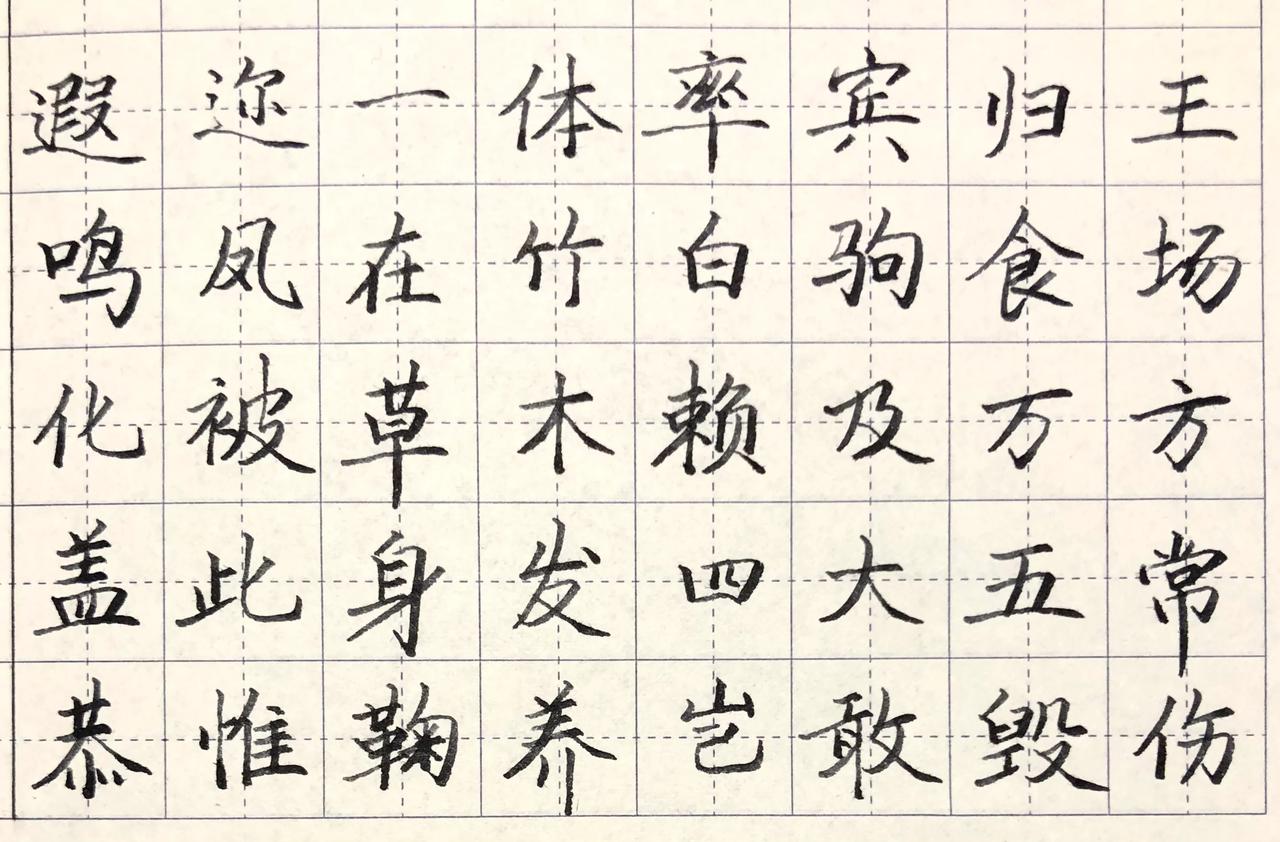 遐迩一体率宾归王
鸣凤在竹白驹食场
化被草木赖及万方
盖此身发四大五常
恭惟鞠养岂敢毁伤